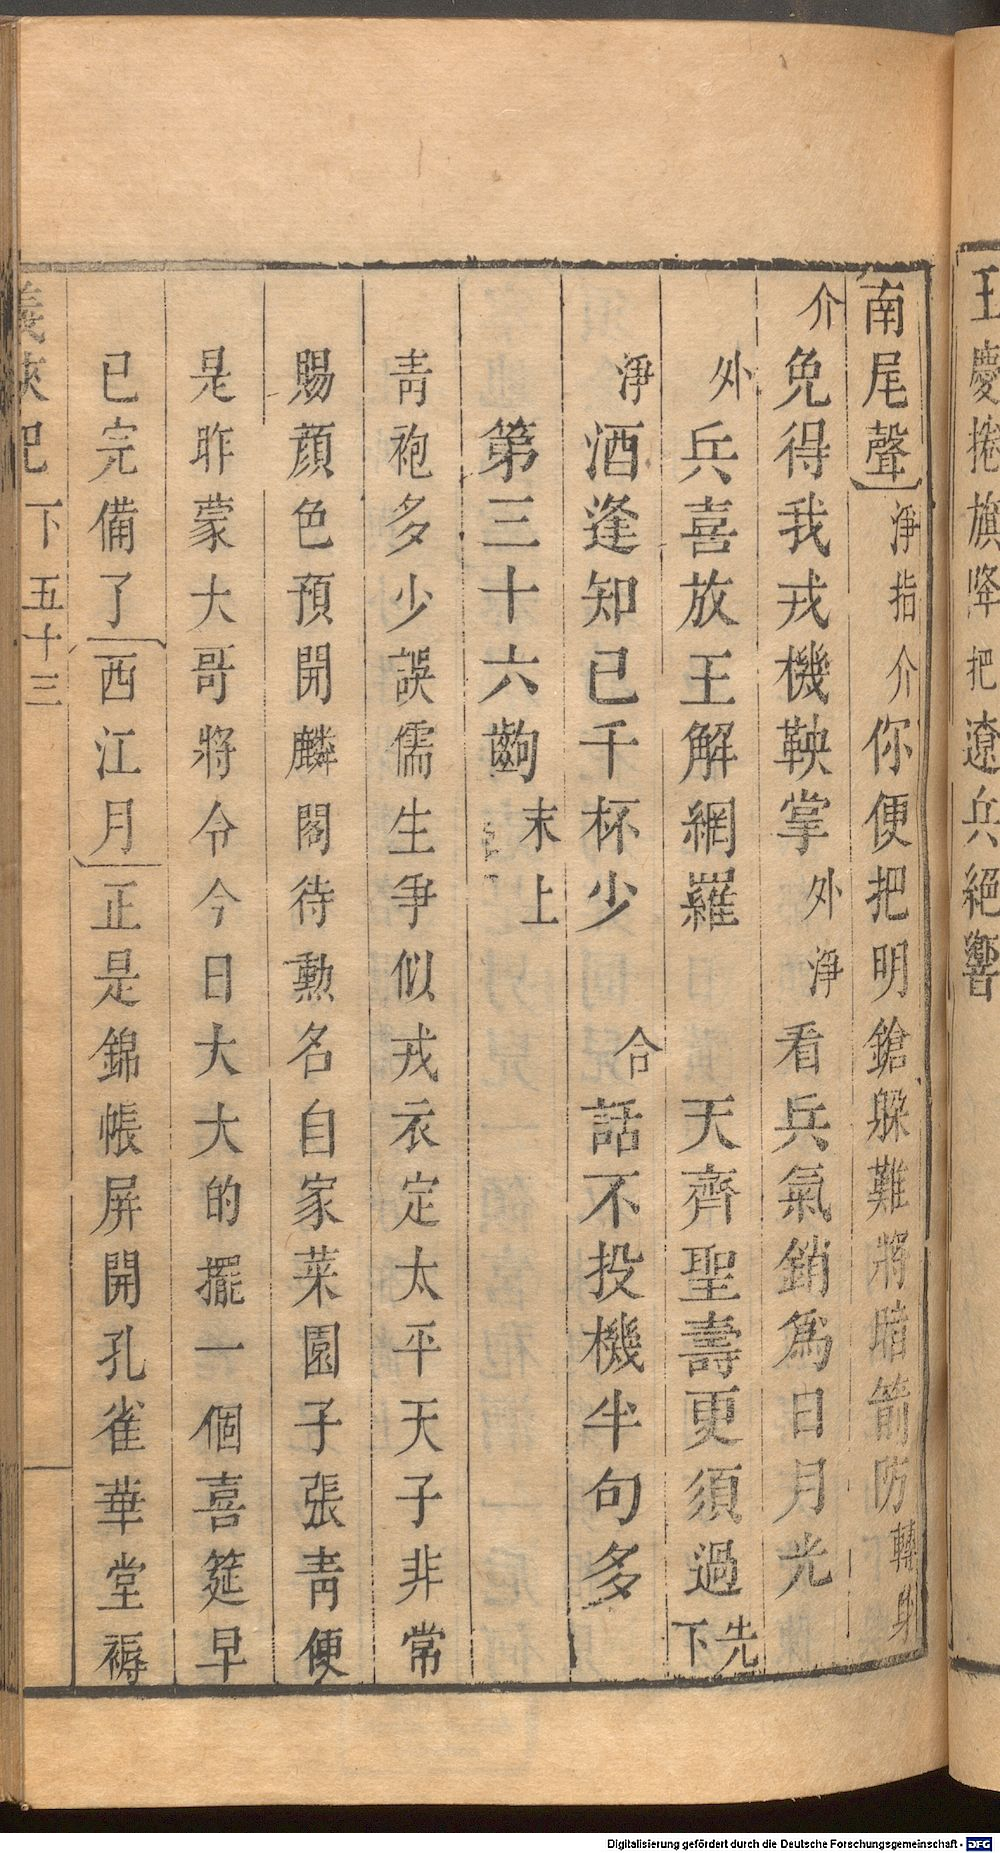 王慶捲旗降把遼兵絕響
南尾聲淨指介你便把明鎗躲難將暗箭防轉身
介免得我戎機鞅掌外淨看兵氣銷爲日月光
外兵喜放王解網羅 天齊聖壽更須過先下
淨酒逢知已千杯少 合話不投機半句多
第三十六齣 末上
靑袍多少誤儒生爭似戎衣定太平天子非常
賜顔色預開麟閣待勳名自家菜園子張靑便
是昨蒙大哥將令今日大大的擺一個喜筵早
已完備了西江月正是錦帳屏開孔雀華堂褥
義俠記 下 五十三
Digitalisierung gefördert durch die Deutsche Forschungsgemeinschaft - DFG